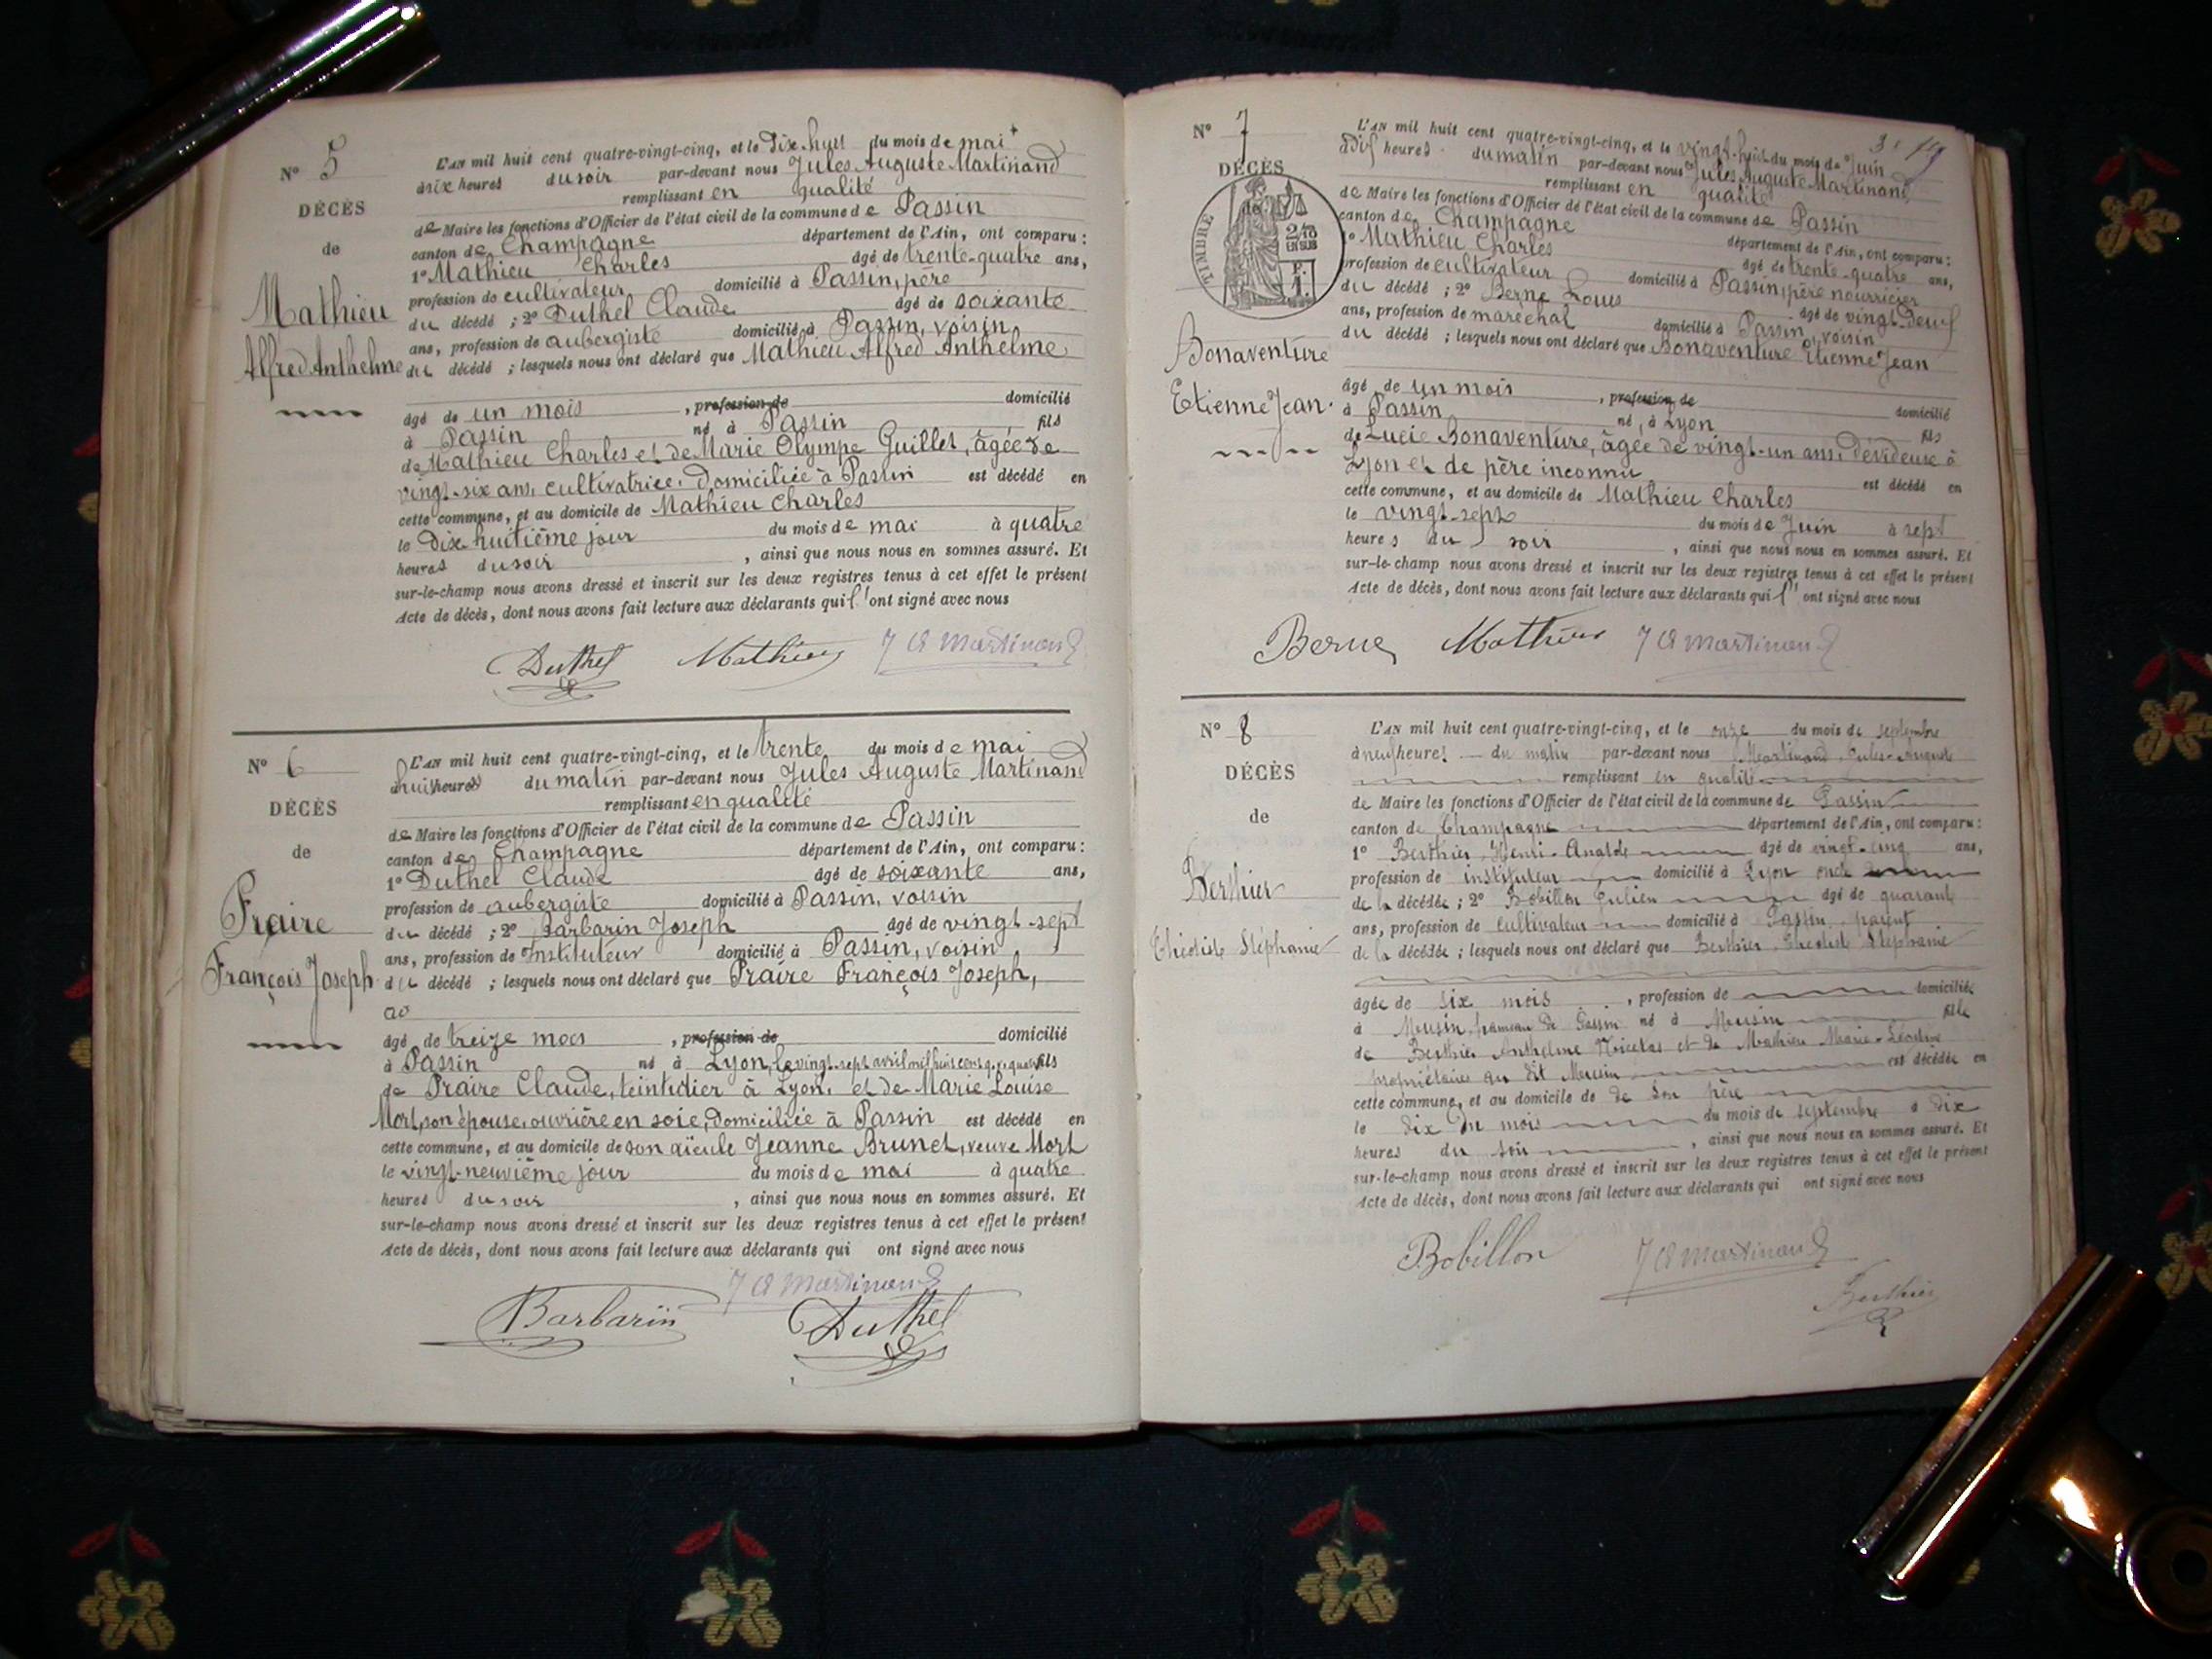 N° 5
DÉCÈS
de
Mathieu
Alfred Anthelme
L'AN mil huit cent quatre-vingt-cinq, et le dix-huit du mois de mai
à six heures du soir par-devant nous Jules Auguste Martinand
remplissant en qualité
de Maire les fonctions d'Officier de l'état civil de la commune de Passin
canton de Champagne département de l'Ain, ont comparu :
1° Mathieu Charles âgé de trente-quatre ans,
profession de cultivateur domicilié à Passin, père
du décédé ; 2° Duthel Claude âgé de soixante
ans, profession de aubergiste domicilié à Passin, voisin
du décédé ; lesquels nous ont déclaré que Mathieu Alfred Anthelme
âgé de un mois , profession de domicilié
à Passin né à Passin fils
de Mathieu Charles et de Marie Olympe Guillet, âgée de
vingt-six ans, cultivatrice, domiciliée à Passin est décédé en
cette commune, et au domicile de Mathieu Charles
le dix huitième jour du mois de mai à quatre
heures du soir , ainsi que nous nous en sommes assuré. Et
sur-le-champ nous avons dressé et inscrit sur les deux registres tenus à cet effet le présent
Acte de décès, dont nous avons fait lecture aux déclarants qui l' ont signé avec nous
Duthel Mathieu J A Martinand
N° 6
DÉCÈS
de
Praire
François Joseph
L'AN mil huit cent quatre-vingt-cinq, et le trente du mois de mai
à huit heures du matin par-devant nous Jules Auguste Martinand
remplissant en qualité
de Maire les fonctions d'Officier de l'état civil de la commune de Passin
canton de Champagne département de l'Ain, ont comparu :
1° Duthel Claude âgé de soixante ans,
profession de aubergiste domicilié à Passin, voisin
du décédé ; 2° Barbarin Joseph âgé de vingt-sept
ans, profession de Instituteur domicilié à Passin, voisin
du décédé ; lesquels nous ont déclaré que Praire François Joseph,
âgé de treize mois , profession de domicilié
à Passin né à Lyon, le vingt-sept avril mil huit cent fils
de Praire Claude, teinturier à Lyon, et de Marie Louise
Mort, son épouse, ouvrière en soie, domiciliée à Passin est décédé en
cette commune, et au domicile de son aïeule Jeanne Brunet, veuve Mort
le vingt-neuvième jour du mois de mai à quatre
heures du soir , ainsi que nous nous en sommes assuré. Et
sur-le-champ nous avons dressé et inscrit sur les deux registres tenus à cet effet le présent
Acte de décès, dont nous avons fait lecture aux déclarants qui ont signé avec nous
J A Martinand
Barbarin Duthel
N° 7
DÉCÈS
TIMBRE
Bonaventure
Etienne Jean
L'AN mil huit cent quatre-vingt-cinq, et le vingt-huit du mois de Juin
à dix heures du matin par-devant nous Jules Auguste Martinand
remplissant en qualité
de Maire les fonctions d'Officier de l'état civil de la commune de Passin
canton de Champagne département de l'Ain, ont comparu :
1° Mathieu Charles âgé de trente-quatre ans,
profession de cultivateur domicilié à Passin, père nourricier
du décédé ; 2° Berne Louis âgé de vingt-neuf
ans, profession de maréchal domicilié à Passin, voisin
du décédé ; lesquels nous ont déclaré que Bonaventure Etienne Jean
âgé de un mois , profession de domicilié
à Passin né à Lyon fils
de Lucie Bonaventure, âgée de vingt-un ans, dévideuse à
Lyon et de père inconnu est décédé en
cette commune, et au domicile de Mathieu Charles
le vingt-sept du mois de Juin à sept
heures du soir , ainsi que nous nous en sommes assuré. Et
sur-le-champ nous avons dressé et inscrit sur les deux registres tenus à cet effet le présent
Acte de décès, dont nous avons fait lecture aux déclarants qui l' ont signé avec nous
Berne Mathieu J A Martinand
N° 8
DÉCÈS
de
Berthier
Théotiste Stéphanie
L'AN mil huit cent quatre-vingt-cinq, et le onze du mois de septembre
à neuf heures du matin par-devant nous Martinand Jules Auguste
remplissant en qualité
de Maire les fonctions d'Officier de l'état civil de la commune de Passin
canton de Champagne département de l'Ain, ont comparu :
1° Berthier Henri âgé de vingt-cinq ans,
profession de instituteur domicilié à Lyon oncle
de la décédée ; 2° Bobillon Julien âgé de quarante
ans, profession de cultivateur domicilié à Passin, parent
de la décédée ; lesquels nous ont déclaré que Berthier Théotiste Stéphanie
âgée de six mois , profession de domiciliée
à Meusin hameau de Passin né à Meusin fille
de Berthier Anthelme Nicetas et de Mathieu Marie
propriétaires au dit Meusin est décédée en
cette commune, et au domicile de de son père
le dix du mois du mois de septembre à dix
heures du soir , ainsi que nous nous en sommes assuré. Et
sur-le-champ nous avons dressé et inscrit sur les deux registres tenus à cet effet le présent
Acte de décès, dont nous avons fait lecture aux déclarants qui ont signé avec nous
Bobillon J A Martinand
Berthier